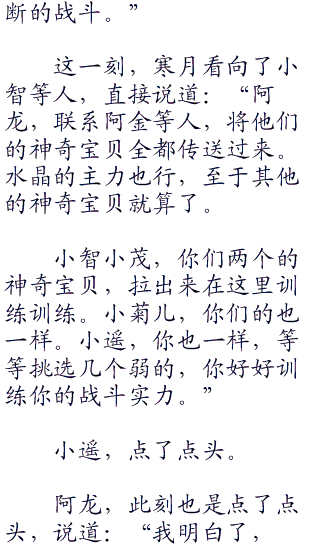 断的战斗。”
这一刻，寒月看向了小
智等人，直接说道：“阿
龙，联系阿金等人，将他们
的神奇宝贝全都传送过来。
水晶的主力也行，至于其他
的神奇宝贝就算了。
小智小茂，你们两个的
神奇宝贝，拉出来在这里训
练训练。小菊儿，你们的也
一样。小遥，你也一样，等
等挑选几个弱的，你好好训
练你的战斗实力。”
小遥，点了点头。
阿龙，此刻也是点了点
头，说道：“我明白了，